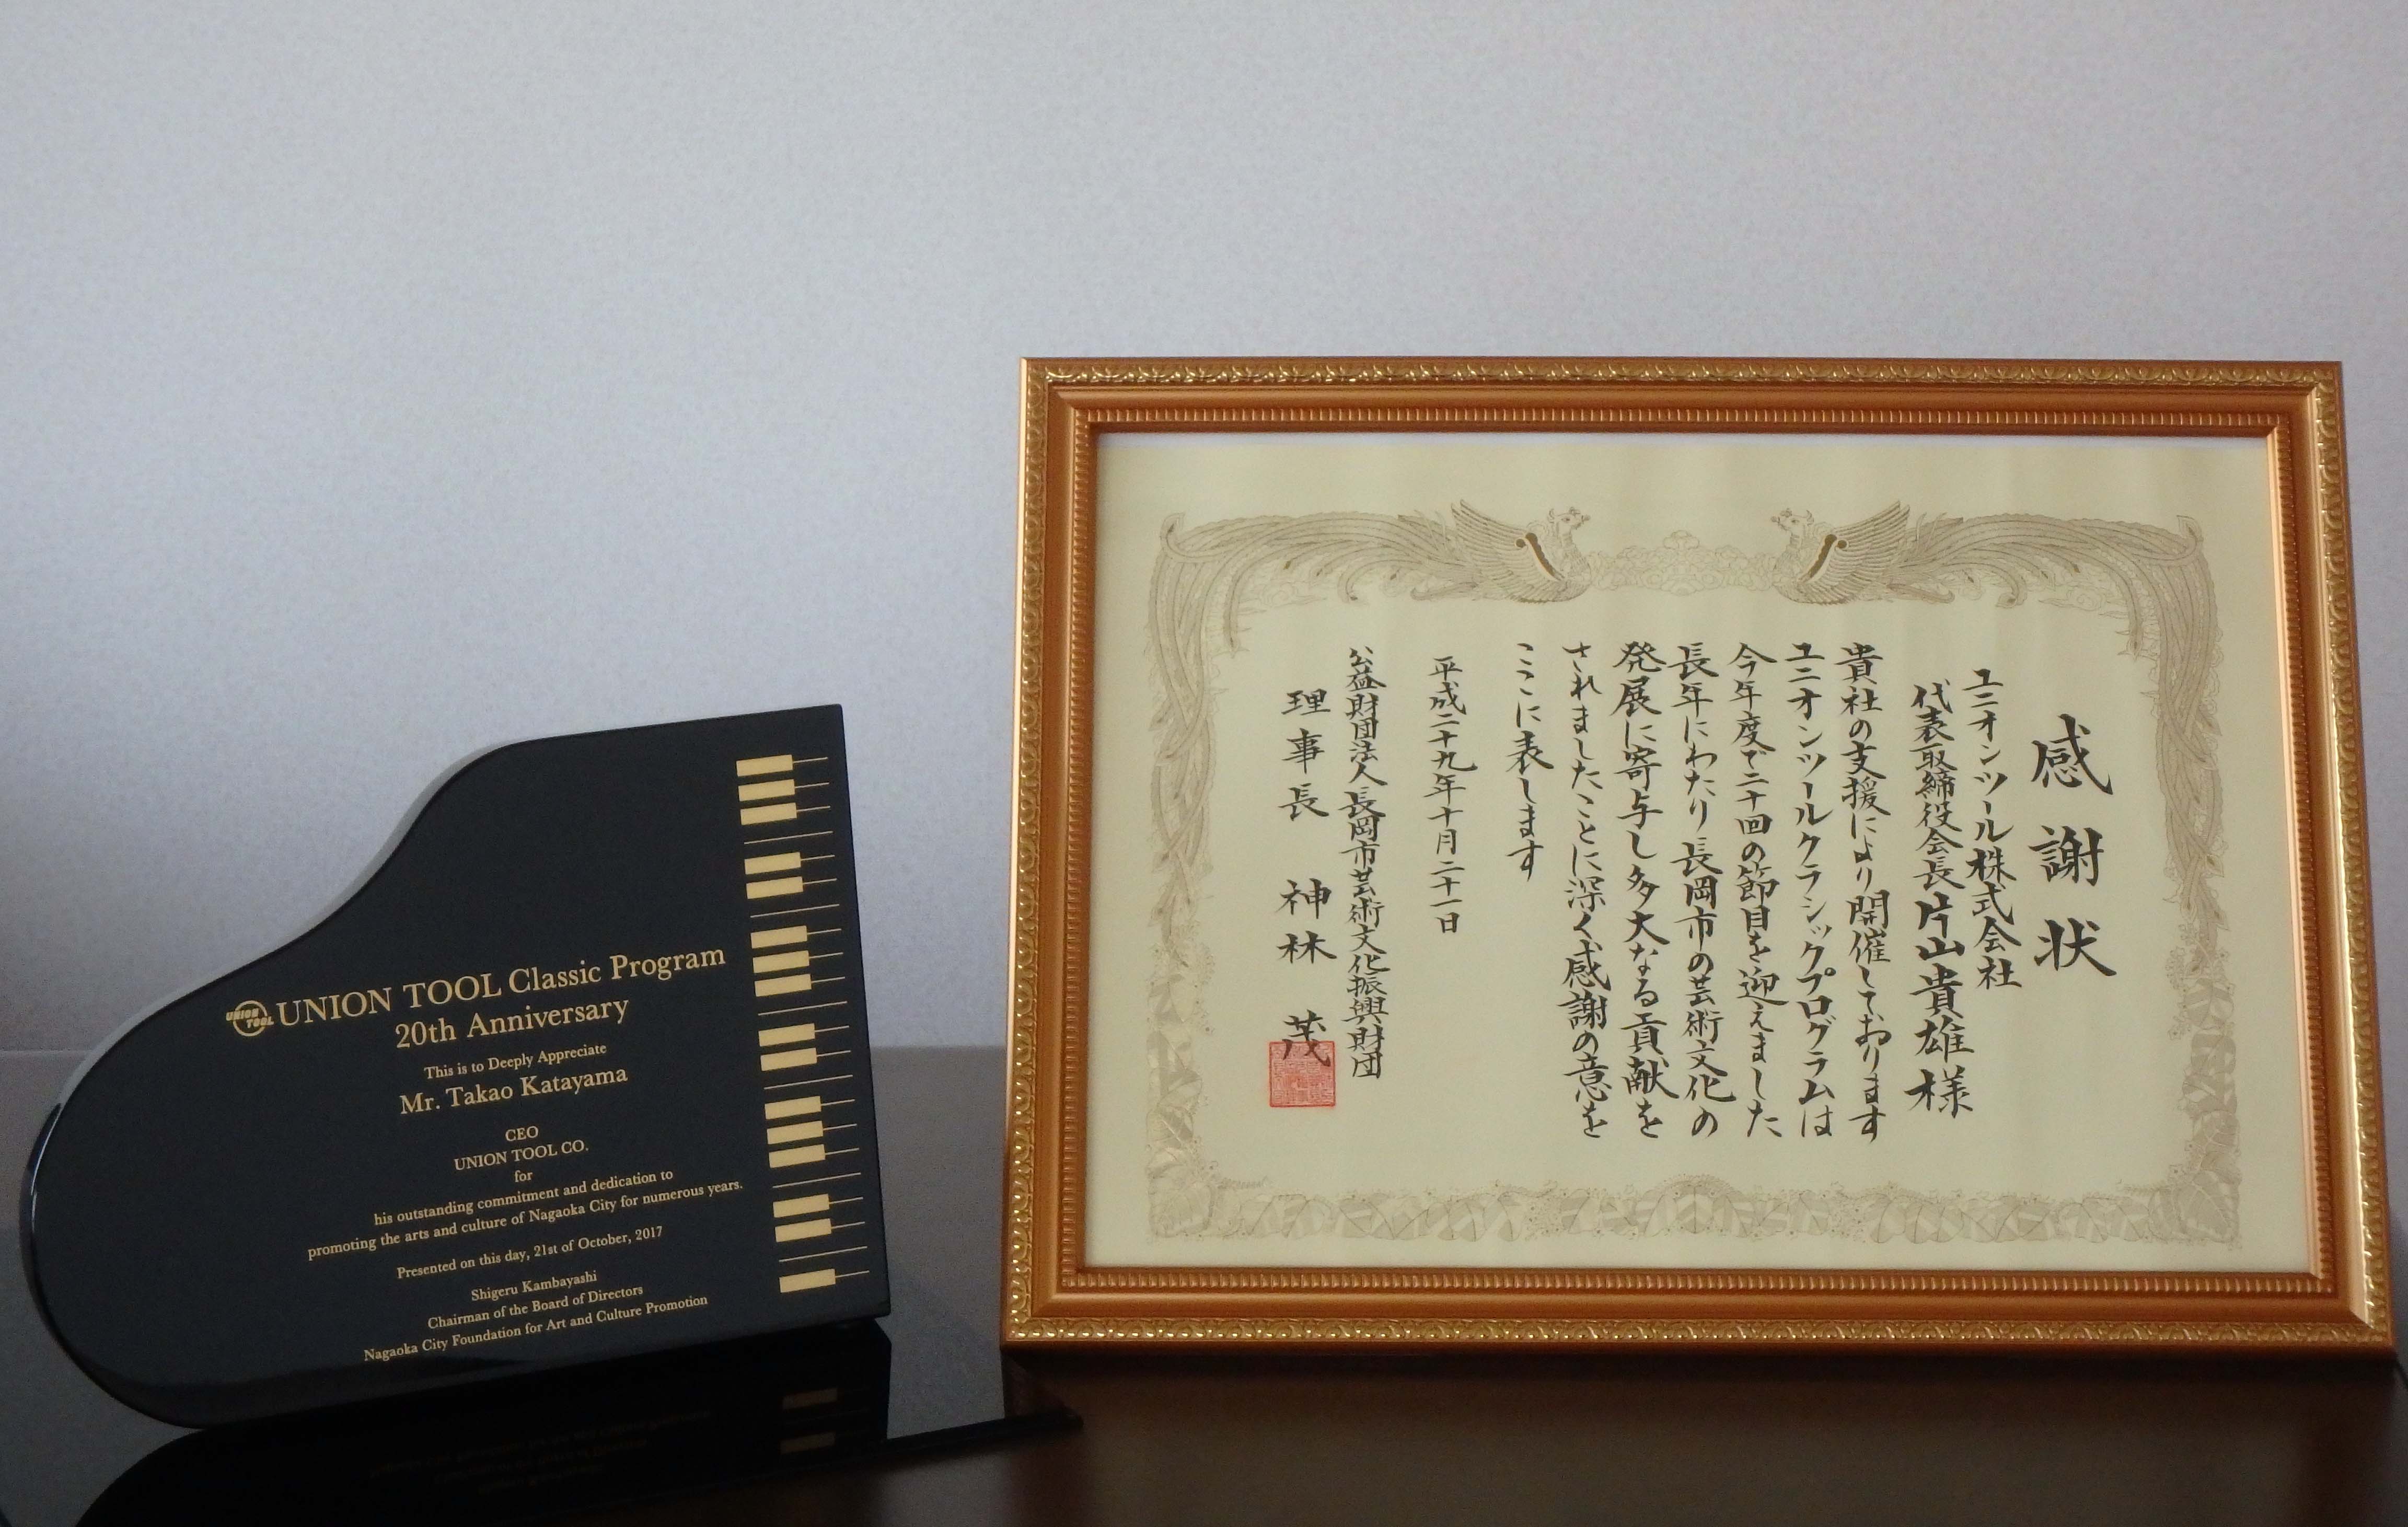 UNION TOOL
UNION TOOL Classic Program
20th Anniversary
This is to Deeply Appreciate
Mr. Takao Katayama
CEO
UNION TOOL CO.
for
his outstanding commitment and dedication to
promoting the arts and culture of Nagaoka City for numerous years.
Presented on this day, 21st of October, 2017
Shigeru Kambayashi
Chairman of the Board of Directors
Nagaoka City Foundation for Art and Culture Promotion
感謝状
ユニオンツール株式会社
代表取締役会長片山貴雄様
貴社の支援により開催しております
ユニオンツールクラシックプログラムは
今年度で二十回の節目を迎えました
長年にわたり長岡市の芸術文化の
発展に寄与し多大なる貢献を
されましたことに深く感謝の意を
ここに表します
平成二十九年十月二十一日
公益財団法人長岡市芸術文化振興財団
理事長 神林 茂